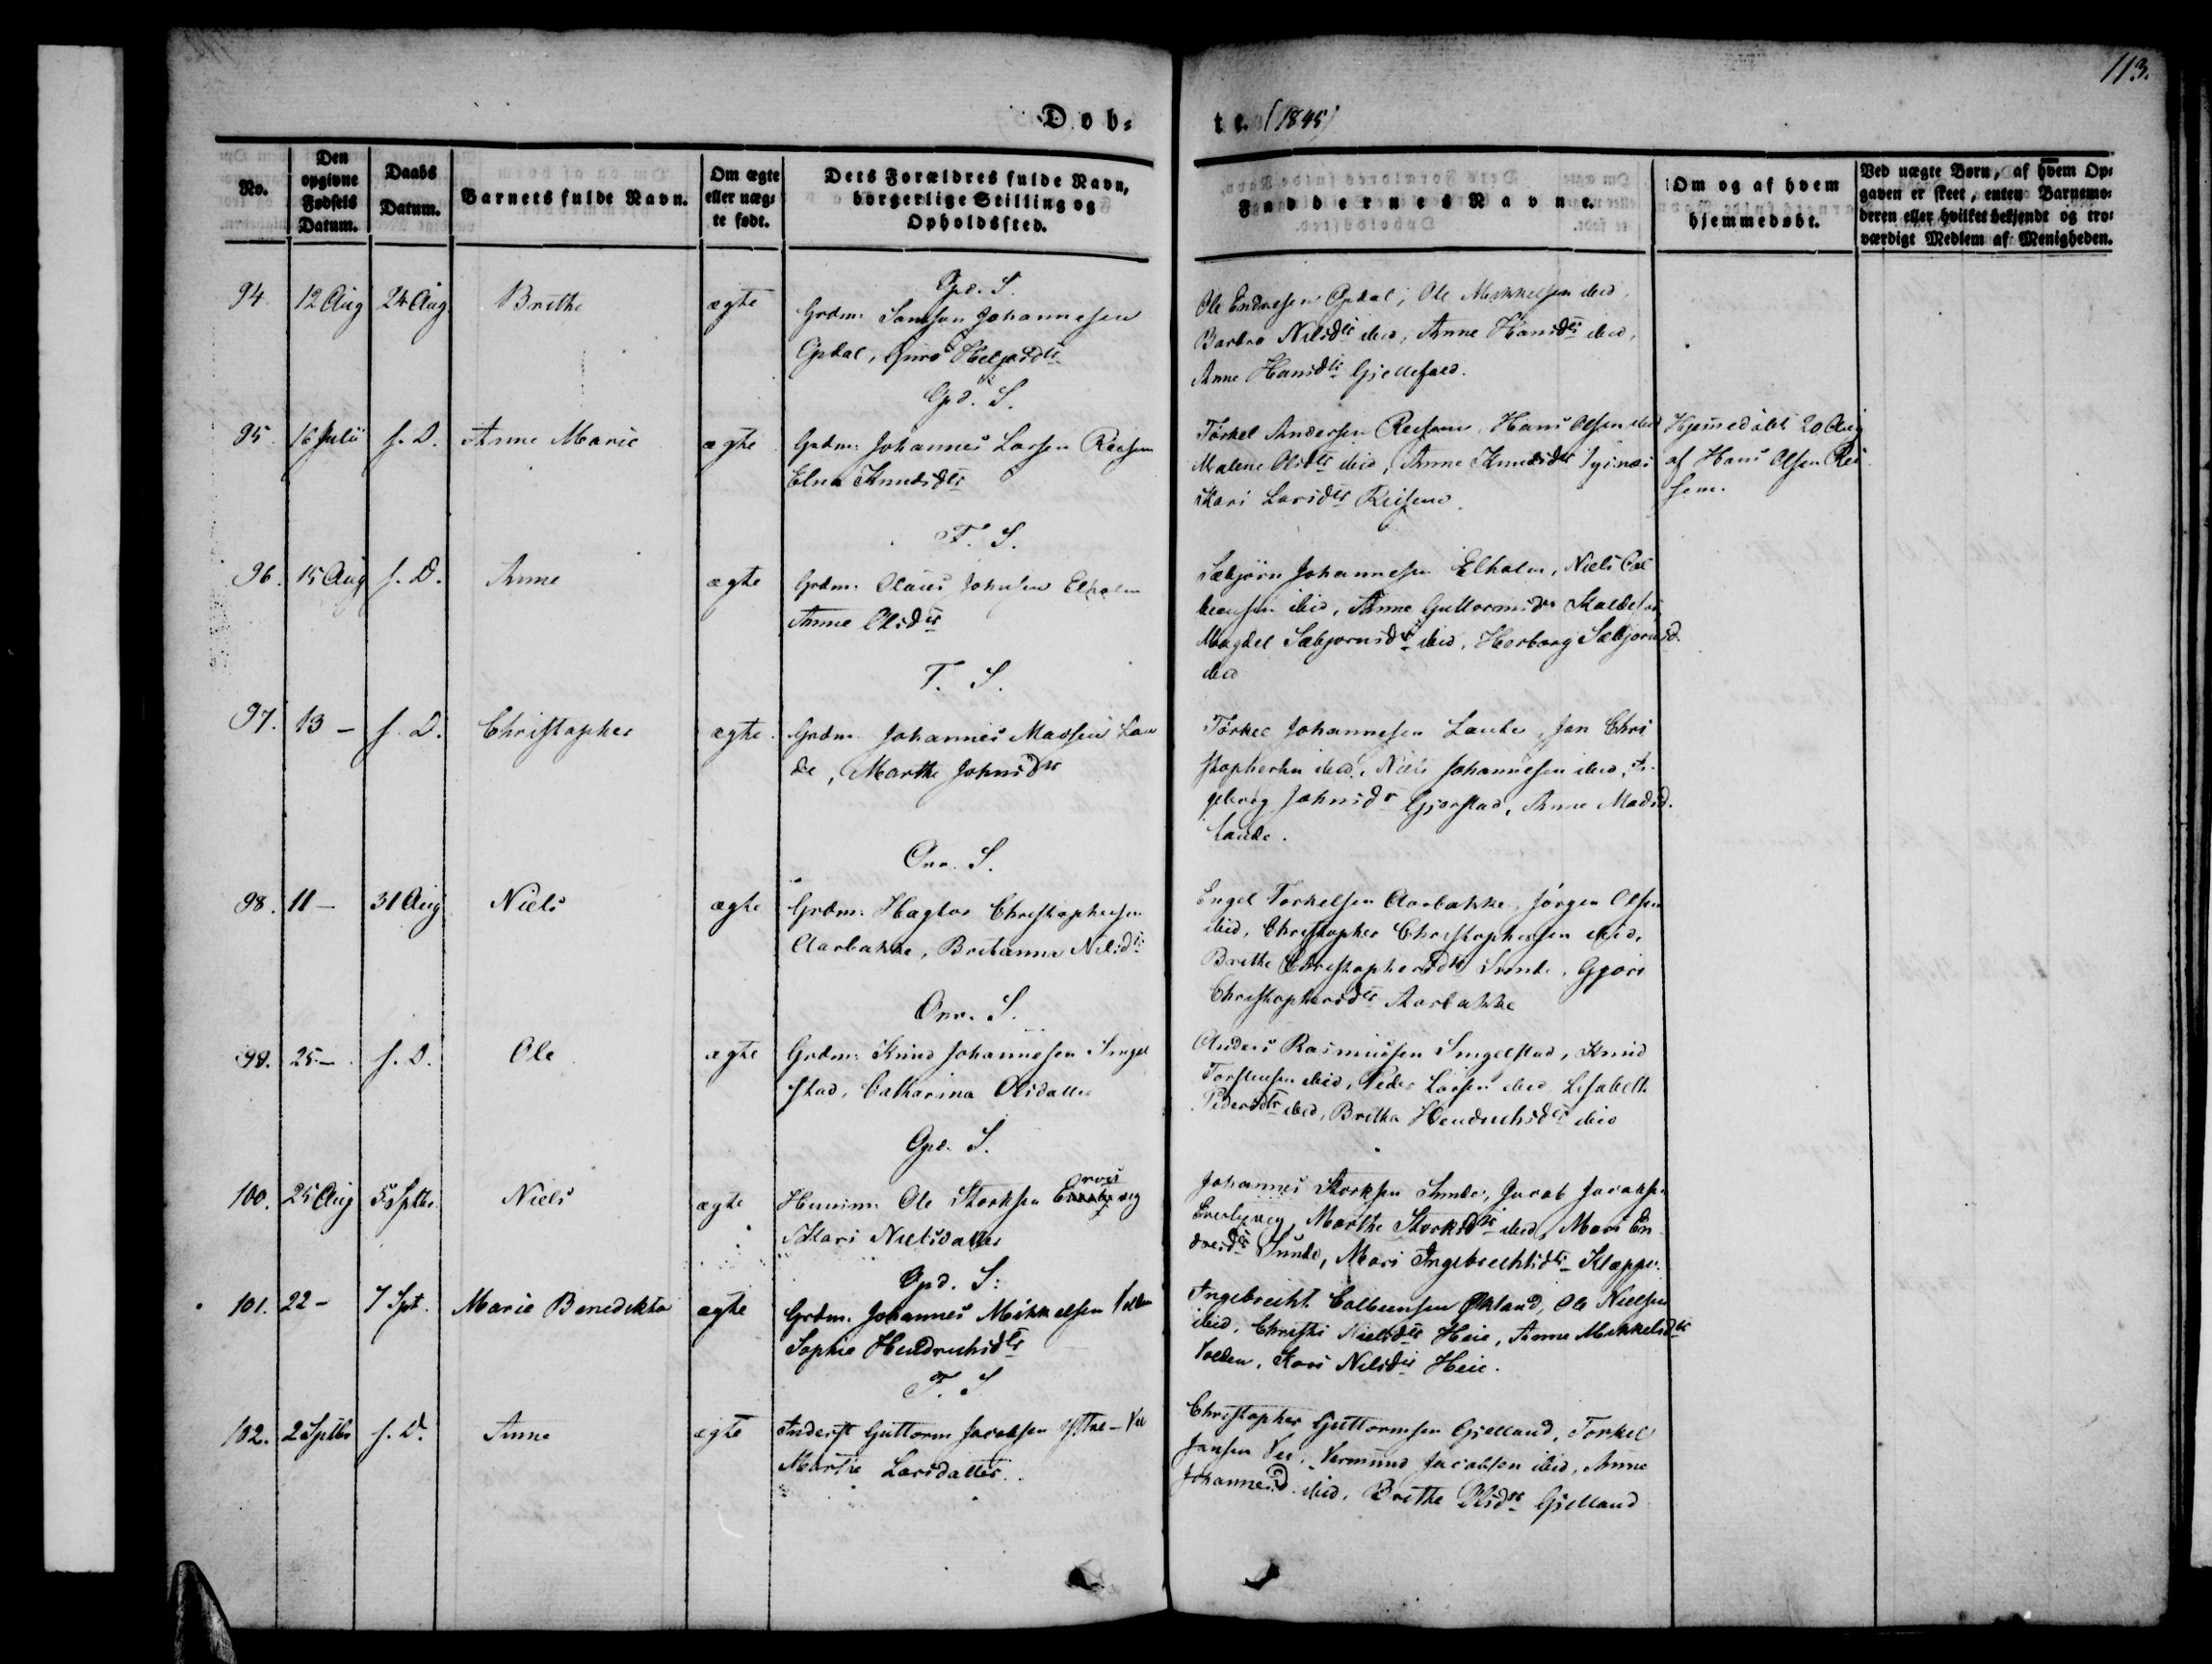 113.
Døb-
te. (1845)
No.
Den opgivne Fødsels Datum.
Daabs Datum.
Barnets fulde Navn.
Om ægte eller uægte født.
Dets Forældres fulde Navn, borgerlige Stilling og Opholdssted.
Faddernes Navne.
Om og af hvem hjemmedøbt.
Ved uægte Børn, af hvem Opgaven er skeet, enten Barnemoderen eller hvilket bekjendt og troværdigt Medlem af Menigheden.
Opd. S.
94. 12 Aug 24 Aug Brithe ægte
Grdm. Samson Johannesen
Opdal, Guro
Ole Endresen Opdal, Ole Mikkelsen ibid,
Barbro Nilsdtr ibid, Anne Hansdtr ibid,
Anne Hansdtr
Opd. S.
95. 16 Julii s. D. Anne Marie ægte
Grdm. Johannes Larsen
Elna Knudsdtr
Torkel Andersen Hans Olsen ibid
Malene Olsdtr ibid, Anne Knudsdtr
Kari Larsdtr
Hjemedøbt 20 Aug
af Hans Olsen Rei
sem.
T. S.
96. 15 Aug s. D. Anne ægte
Grdm. Olaus Johnsen Elholm
Anne Olsdtr
Sæbjørn Johannesen Elholm, Niels
ibid, Anne Guttormsdtr
Magdel Sæbjørnsdtr ibid, Herborg Sæbjørnsd.
ibid
T. S.
97. 13 - s. D. Christopher ægte
Grdm. Johannes Madsen Lan
de, Marthe Johnsdtr
Torkel Johannesen Lande, Jon Chri
stophersen ibid, Niels Johannesen ibid, In
geborg Johnsdr Gjerstad, Anne Madsd.
Lande.
Onr. S.
98. 11 - 31 Aug Niels ægte
Grdm. Christophersen
Aarbakke, Britanna Nilsdtr
Engel Torkelsen Aarbakke, Jørgen Olsen
ibid, Christopher Christophersen ibid,
Brithe Christophersdtr Sunde, Gjøri
Christophersdtr Aarbakke
Onr. S.
99. 25 - s. D. Ole ægte
Grdm. Knud Johannesen Singel
stad, Catharina Olsdatter
Anders Rasmussen Singelstad, Knud
Torstensen ibid, Peder Larsen ibid, Lisabeth
Pedersdtr ibid, Britha Hendrichsdtr ibid
Opd. S.
100. 25 Aug 5 Sptbr Niels ægte
Huusm. Ole Storksen
Kari Nielsdatter
Johannes Storksen Sunde, Jacob Jacobs.
Marthe Storksdtr ibid, Mari En
dresdtr Sunde, Mari Ingebrechtsdtr Kleppe.
Opd. S.
101. 22 - 7 Spt. Marie Benedikta ægte
Grdm. Johannes Mikkelsen Volden
Sophie Hendrichsdtr
Ingebrecht Colbensen Økland, Ole Nielsen
ibid, Christi Nielsdtr Heie, Anne Mikkelsdtr
Volden, Kari Nilsdtr Heie.
T. S
102. 2 Sptbr s. D. Anne ægte
Inderst Guttorm Jacobsen
Marthe Larsdatter.
Christopher Guttormsen Gjelland, Torkel
Jansen Vermund Jacobsen ibid, Anne
Johannesd. ibid, Brithe Olsdtr Gjelland